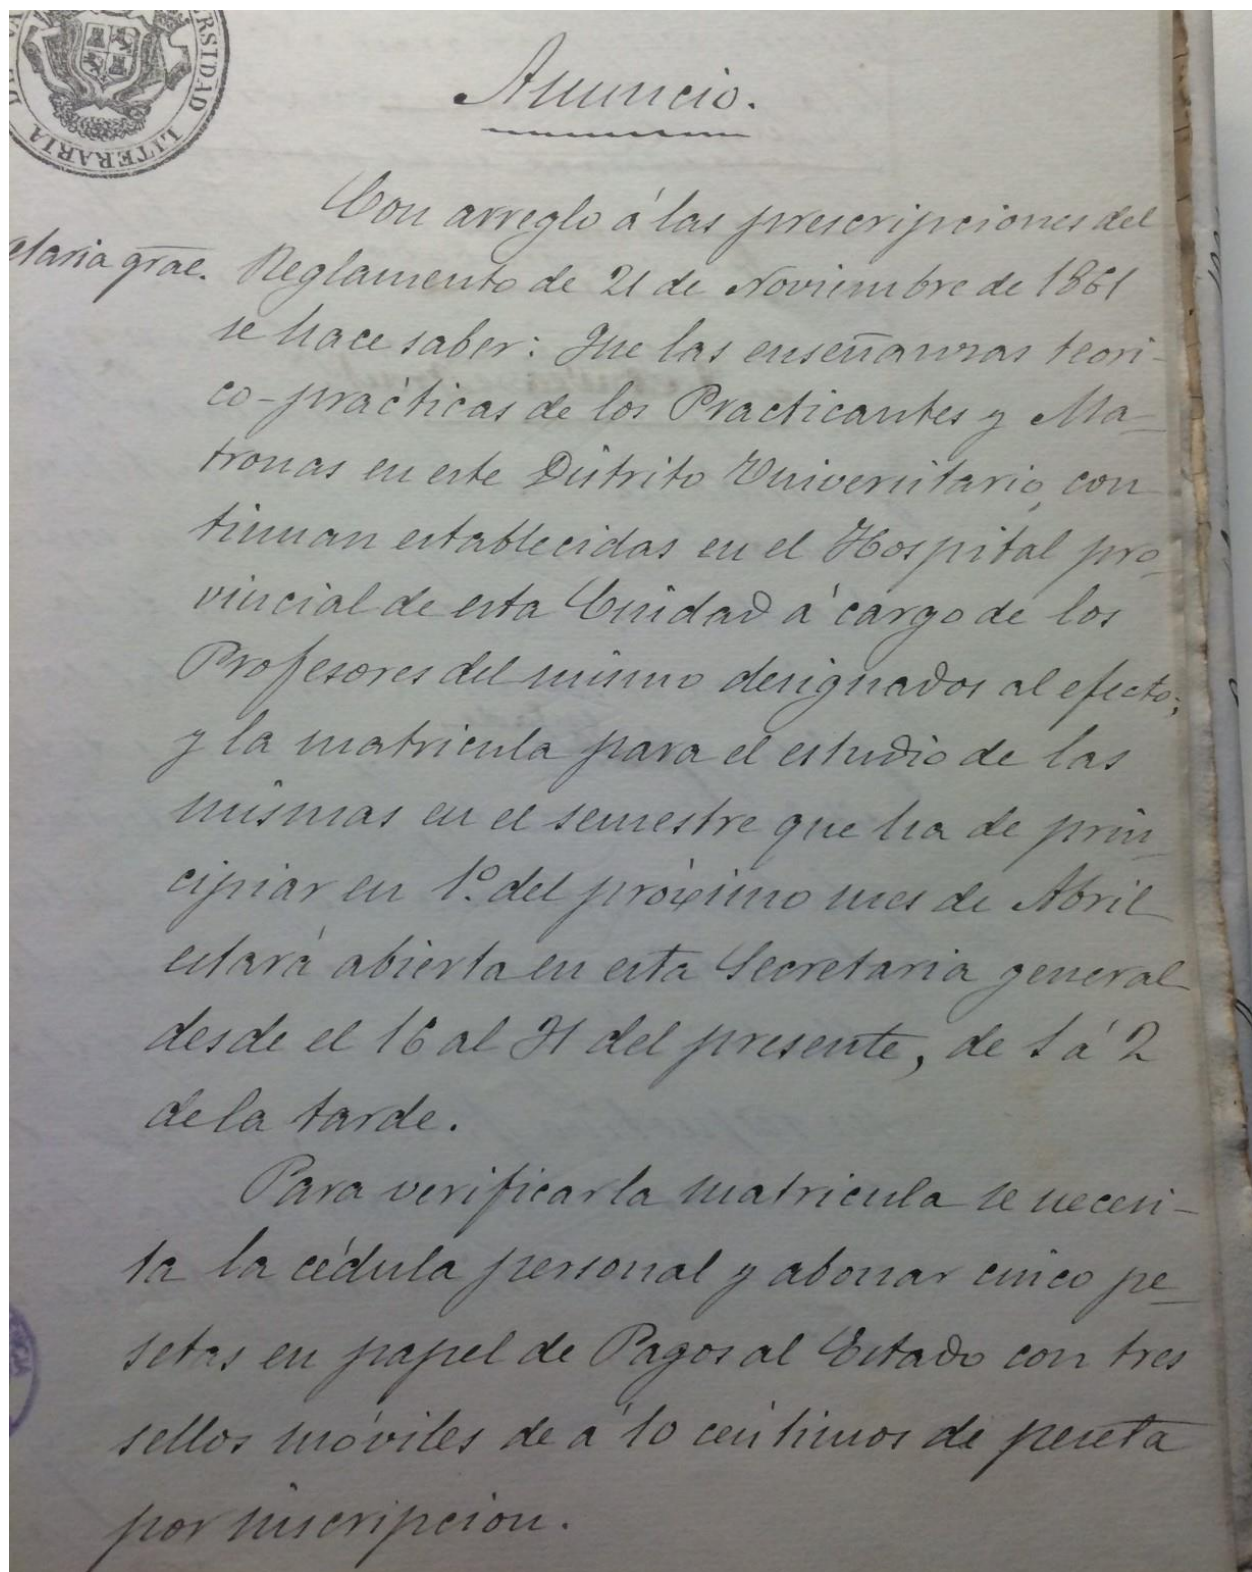 UNIVERSIDAD LITERARIA
Anuncio.
Con arreglo á las prescripciones del
etaria gral. Reglamento de 21 de Noviembre de 1861
se hace saber: Que las enseñanzas teori-
co-prácticas de los Practicantes y Ma-
tronas en este Distrito Universitario, con
tinuan establecidas en el Hospital pro-
vincial de esta Ciudad á cargo de los
Profesores del mismo designados al efecto;
y la matricula para el estudio de las
mismas en el semestre que ha de prin-
cipiar en 1º. del próximo mes de Abril
estará abierta en esta Secretaria general
desde el 16 al 31 del presente, de 1 á 2
de la tarde.
Para verificar la matricula se necesi-
ta la cédula personal y abonar cinco pe-
setas en papel de Pagos al Estado con tres
sellos móviles de á 10 céntimos de peseta
por inscripcion.